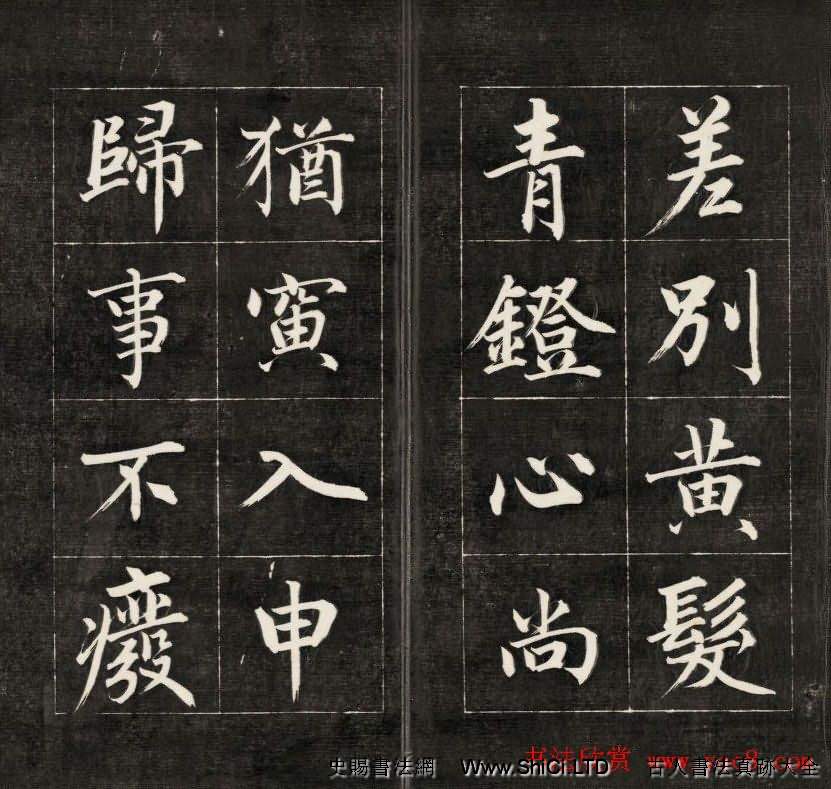 差別黄髮
青鐙心尚
猶寅入申
歸事不癈
书法欣赏 www.yac8.com
史賜書法網 Www.ShiCi.LTD 古人書法真跡大全